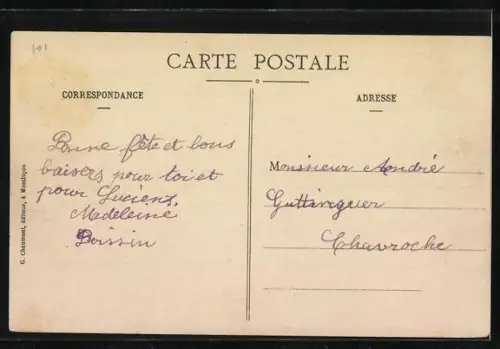 101
CARTE POSTALE
CORRESPONDANCE
ADRESSE
Bonne fête et bons
baisers pour toi et
pour Lucienx
Madeleine
Boissin
Monsieur André
Guttinguer
Chavroche
G. Chaumont, éditeur, à Montluçon